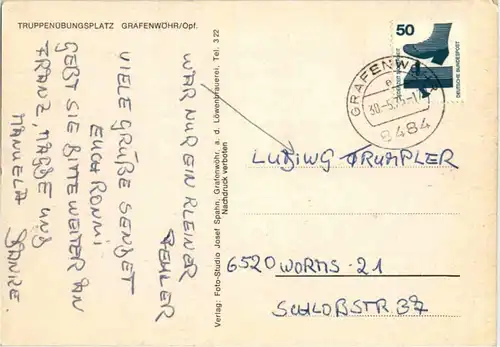 TRUPPENÜBUNGSPLATZ GRAFENWÖHR/Opf.
VIELE GRÜßE SENDET
EUCH RONNI
GEBT SIE BITTE WEITER AN
FRANZ, MAGGE UND
MANUELA
WAR NUR EIN KLEINER
FEHLER
Verlag: Foto-Studio Josef Spahn, Grafenwöhr, a. d. Löwenbrauerei, Tel. 3 22
Nachdruck verboten
50
DEUTSCHE BUNDESPOST
GRAFENWÖHR
8484
LUDIWG TRUMPLER
6520 WORMS-21
SCHLOßSTR 37